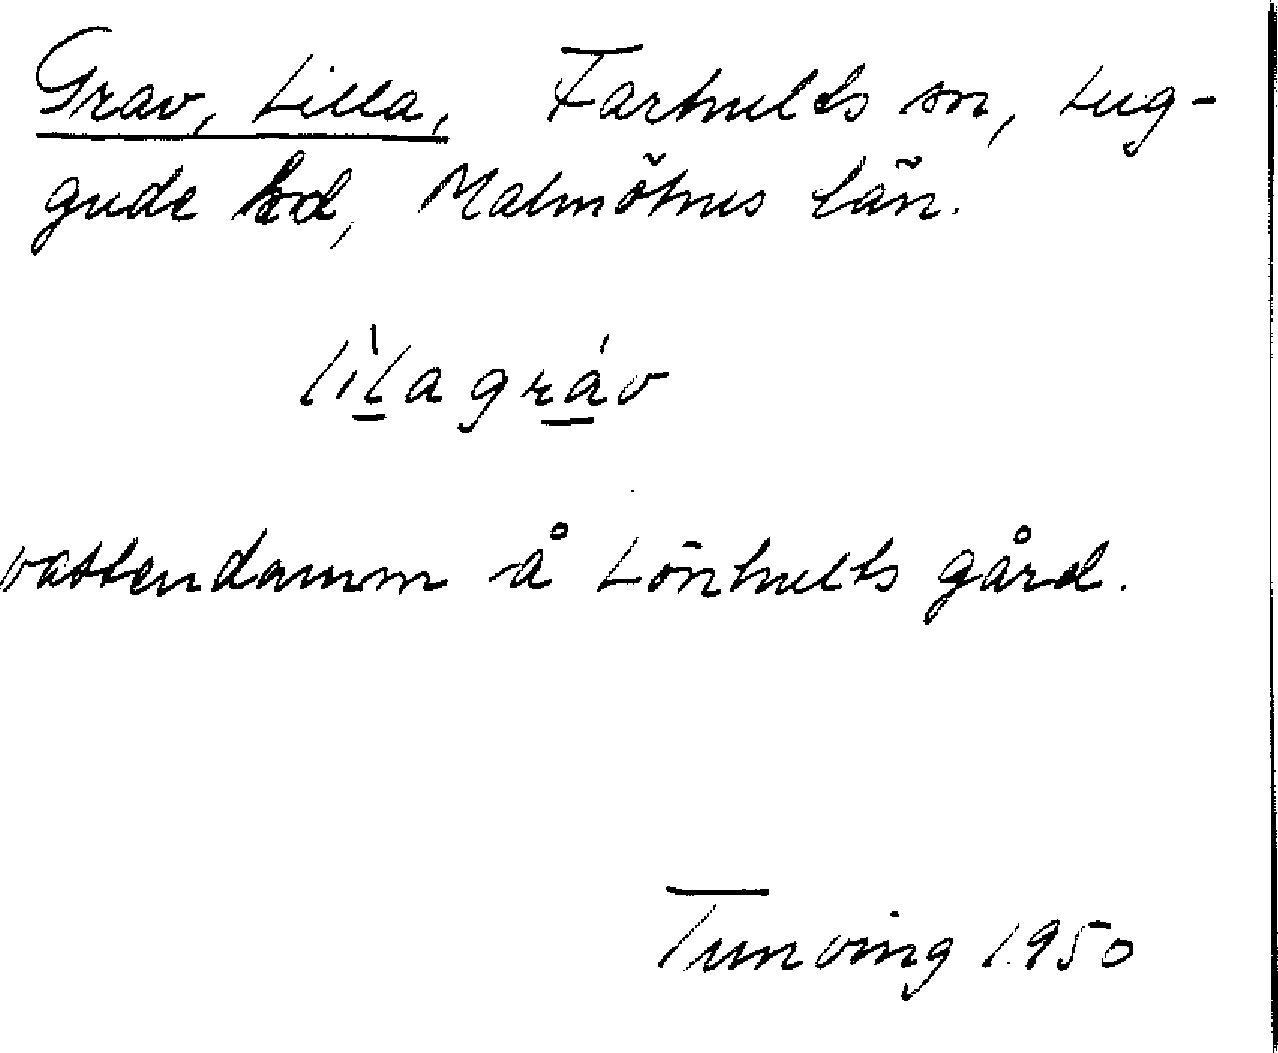 Grav, Lilla, Farhults sn, Lug-
gude hd, Malmöhus län.
lìl̲a grá̲v
vattendamm å Lönhults gård.
Tunving 1950